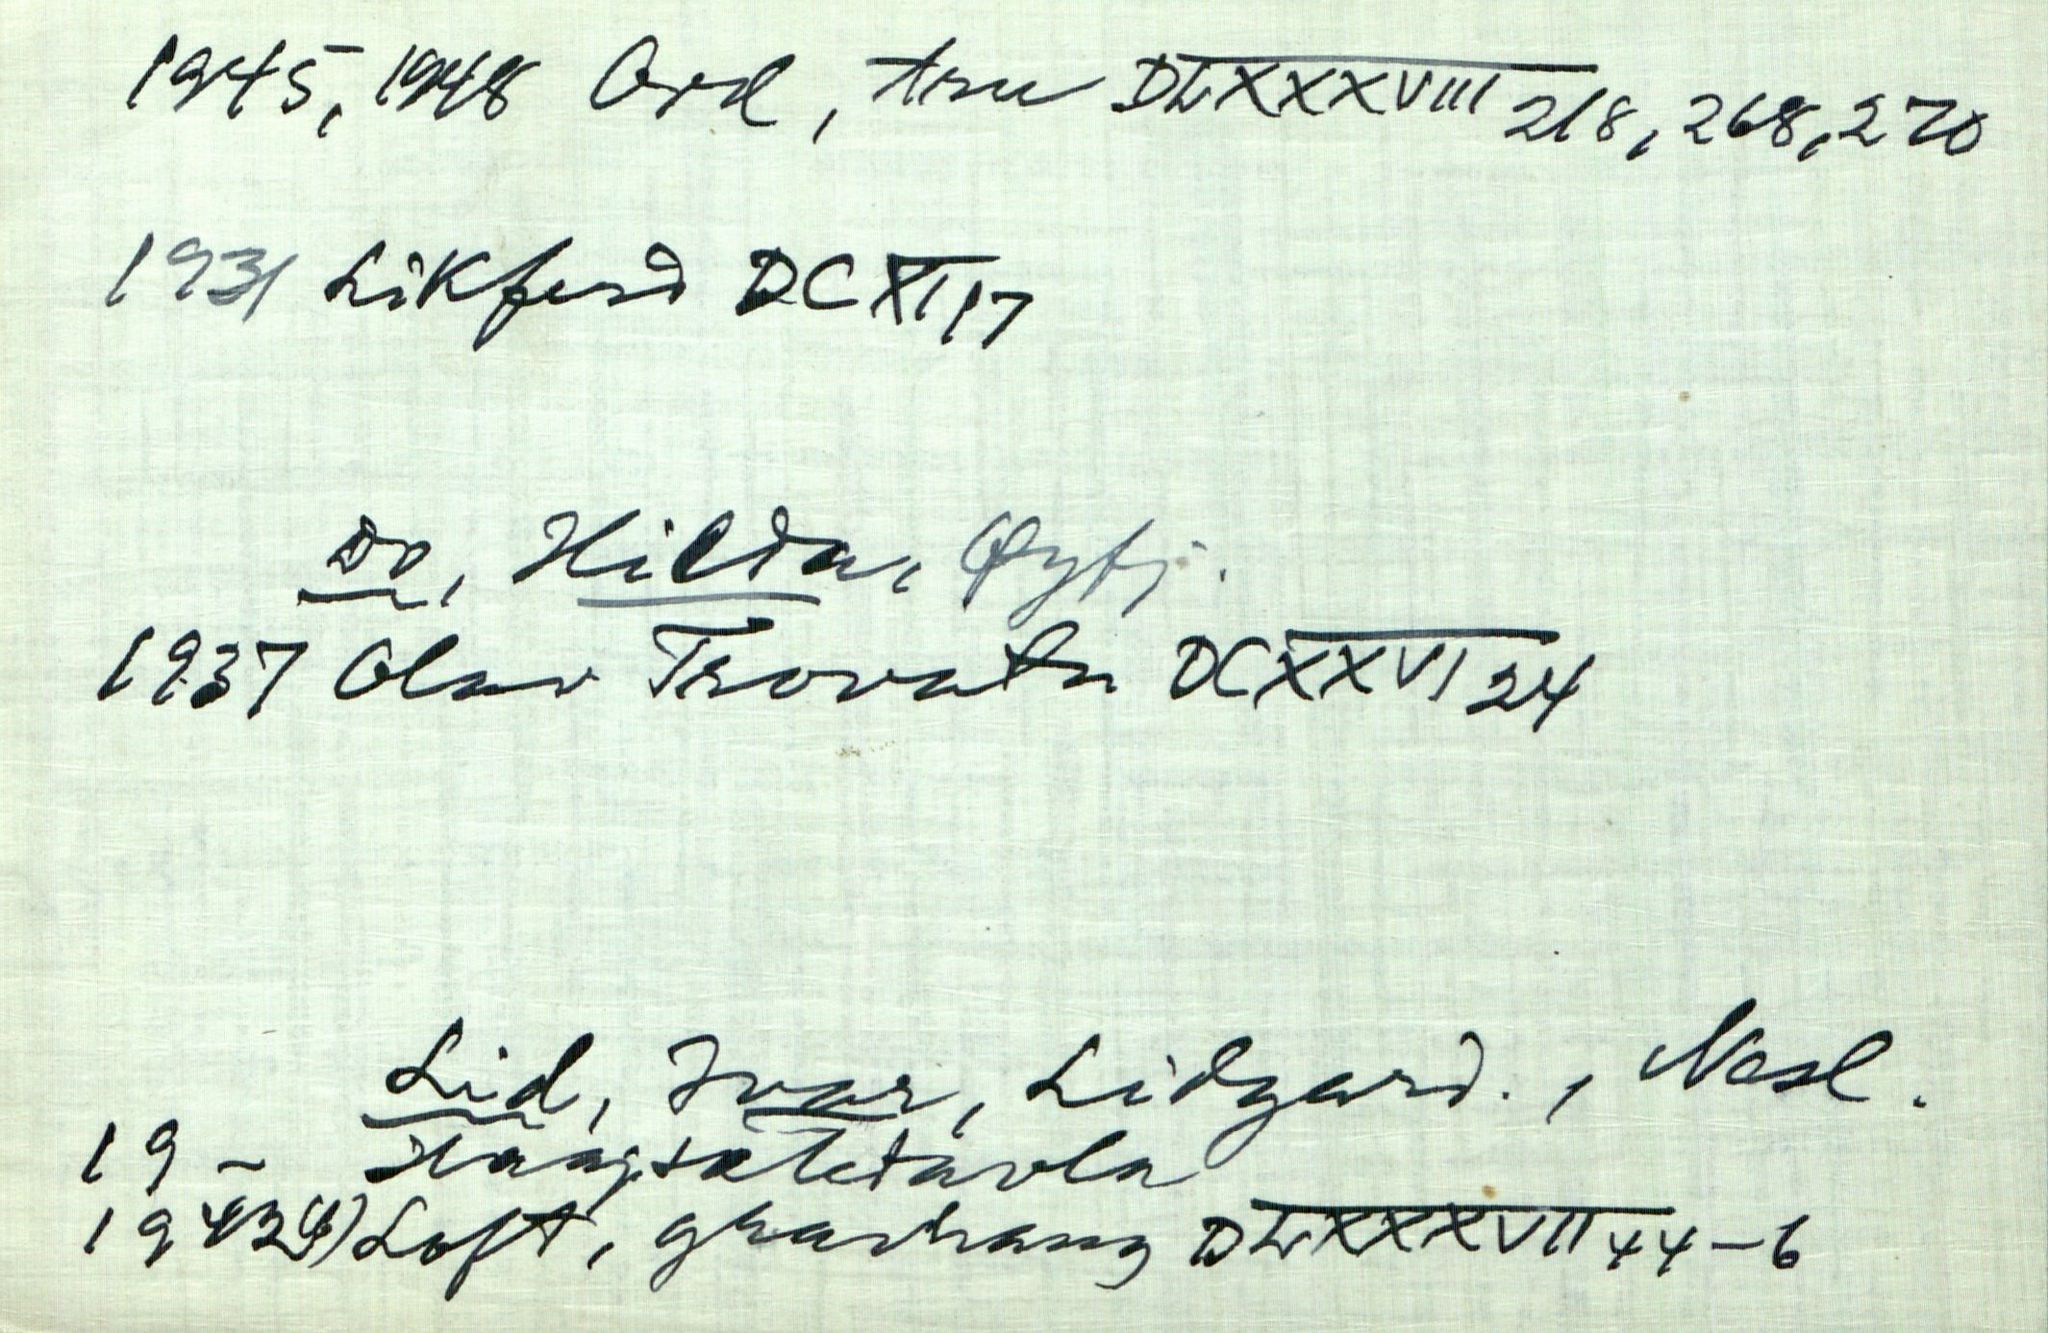 1945, 1948 Ord, tru DLXXXVIII 218, 268, 270
1931 Likferd DCXI 17
Do, Hilda, Øyfj.
1937 Olav Trovatn DCXXVI 24
Lid, Ivar, Lidgard., Nesl.
19 - Haugsetedavla
1943(4) Loft, gravhaug DLXXXVII 44-6